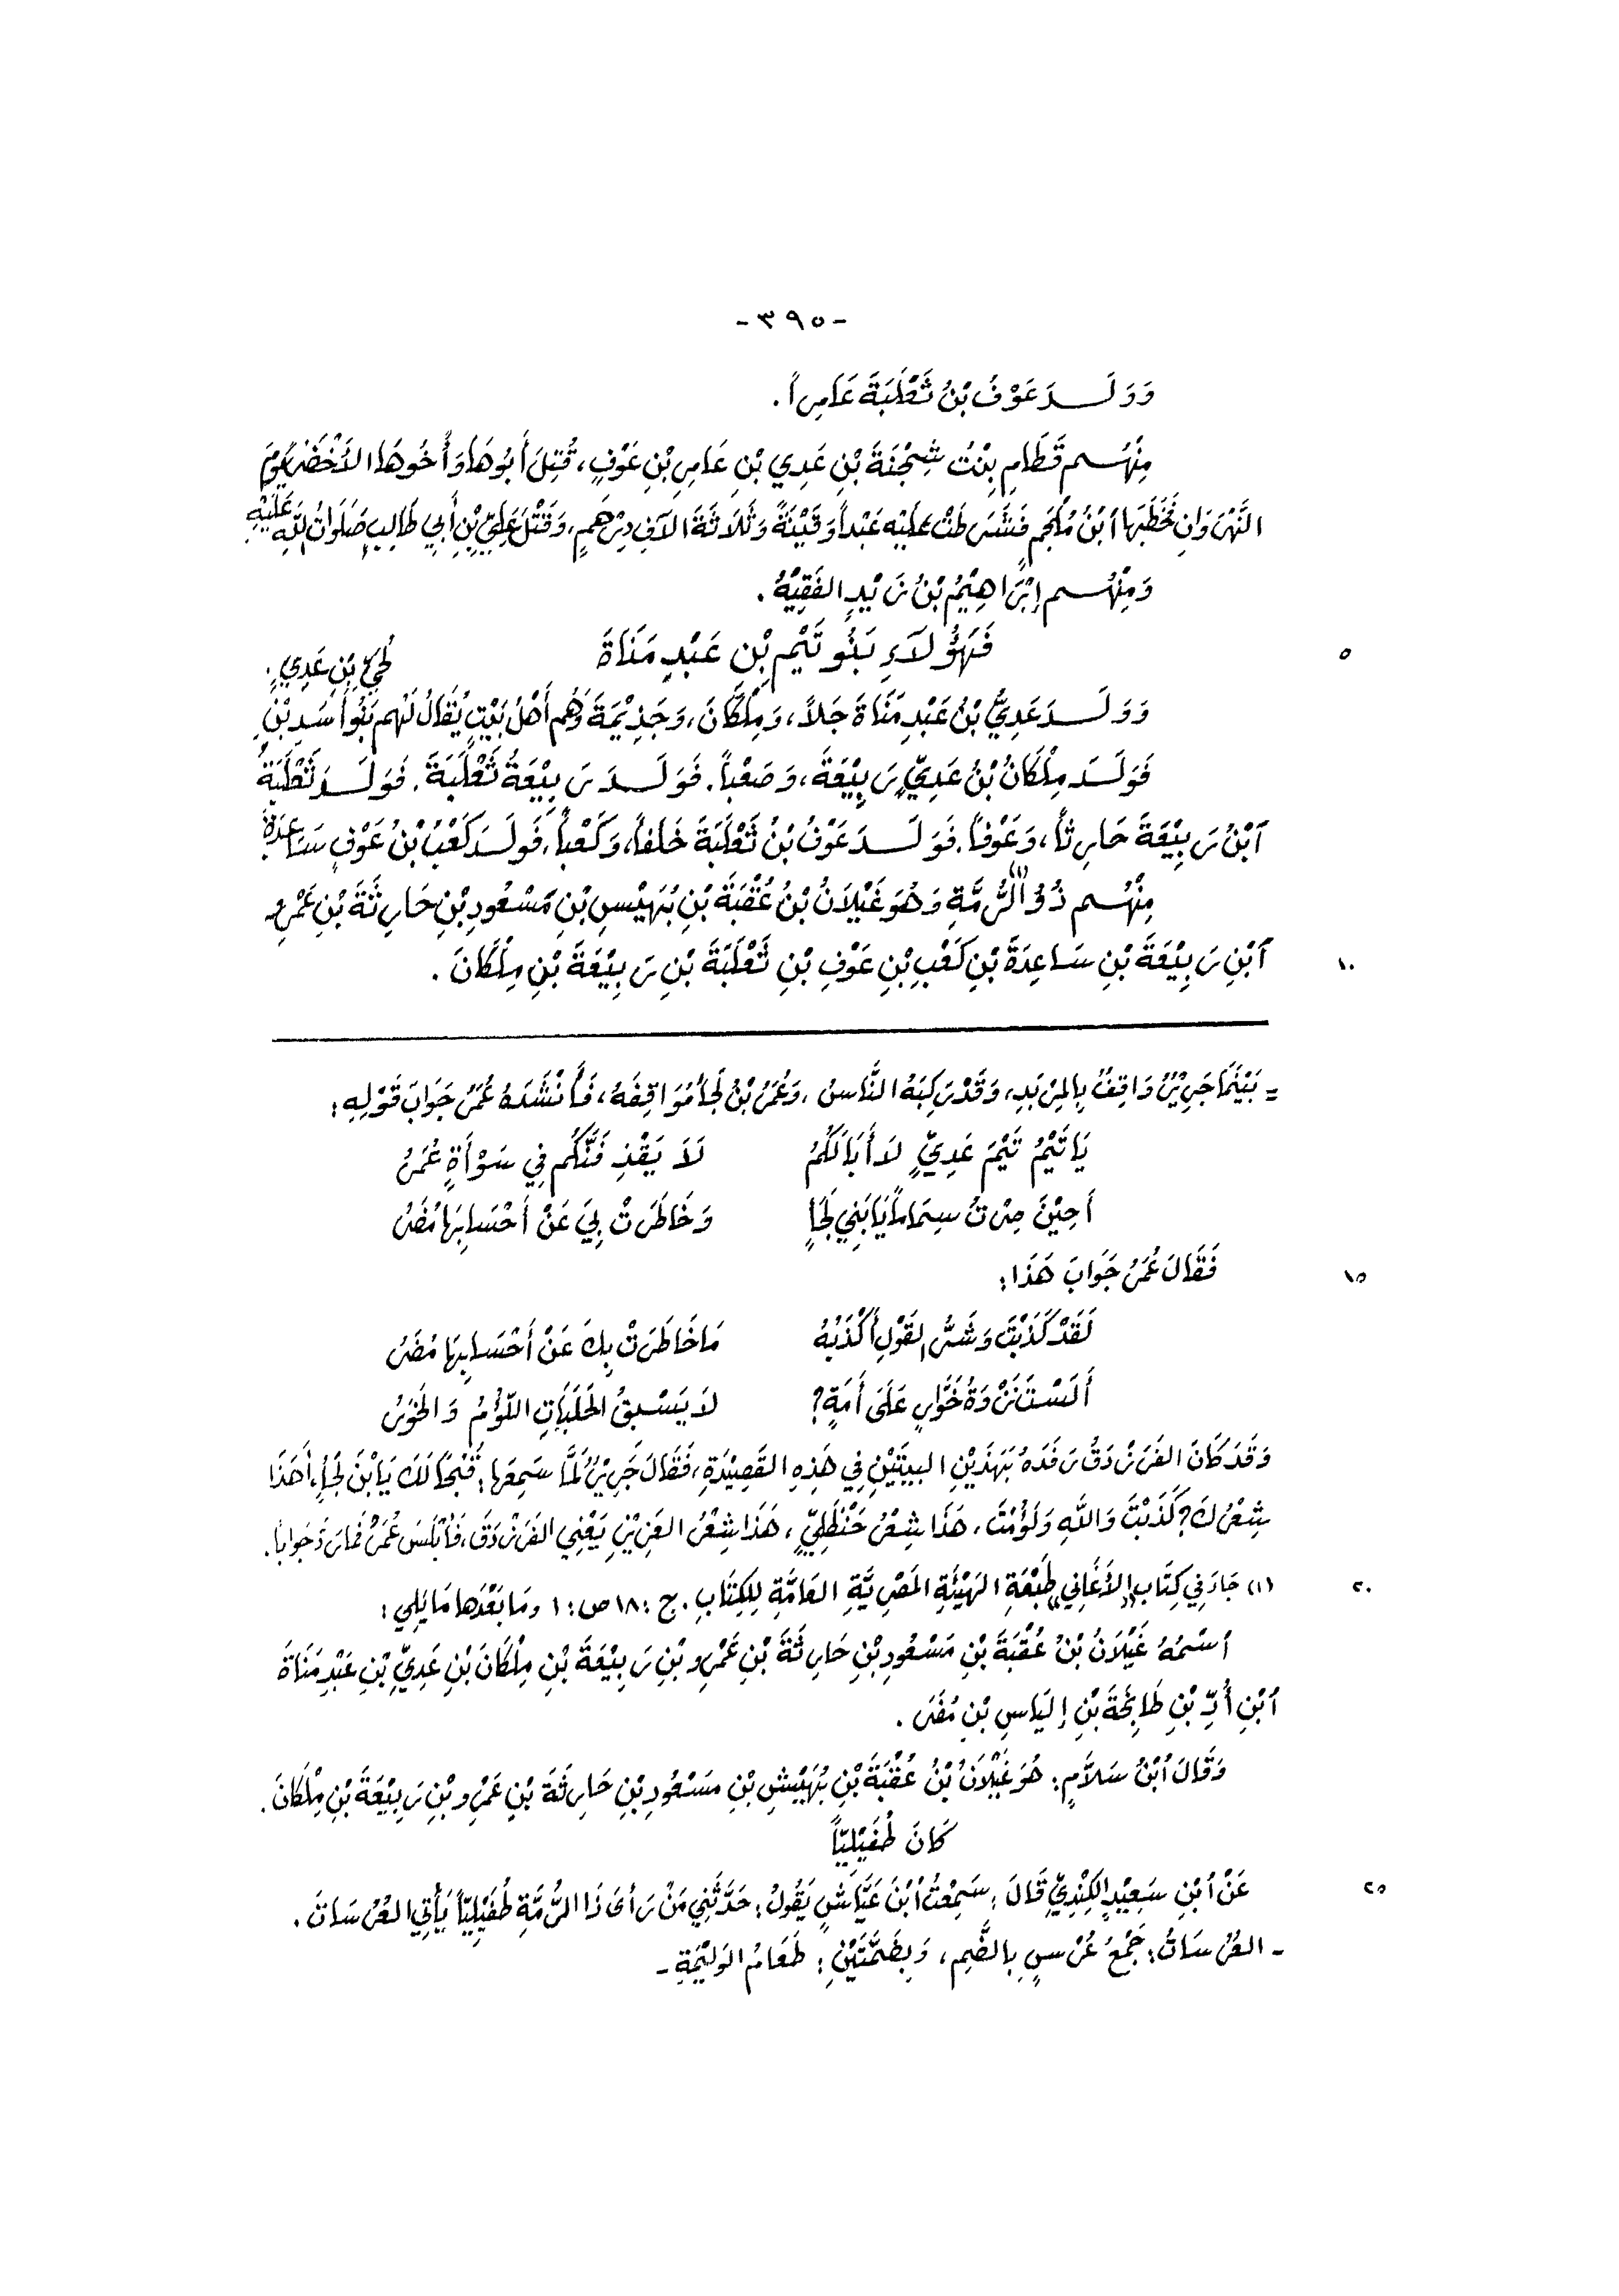 -٣٩٥-
وَوَلَــدَ عَوْفُ بْنُ ثَعْلَبَةَ عَامِراً.
مِنْهُــم قَطَامِ بِنْتُ شِجْنَةَ بْنِ عَدِي بْنِ عَامِرِ بْنِ عَوْفٍ، قُتِلَ أَبُوهَا وَأَخُوهَا الأَخْضَرُ يَوْمَ
النَّهْرَوَانِ فَخَطَبَهَا ٱبْنُ مُلْجَمٍ فَشَرَطَتْ عَلَيْهِ عَبْداً وَقَيْنَةً وَثَلَاثَةَ الآفِ دِرْهَمٍ، وَقَتْلَ عَلِيِّ بْنِ أَبِي طَالِبٍ صَلَوَاتُ اللَّهِ عَلَيْهِ.
وَمِنْهُــم إِبْرَاهِيْمُ بْنُ زَيْدٍ الفَقِيْهُ.
فَهَؤُلَاءِ بَنُو تَيْمِ بْنِ عَبْدِ مَنَاةَ
٥
وَوَلَــدَ عَدِيُّ بْنُ عَبْدِ مَنَاةَ جَلاً، وَمِلْكَانَ، وَجَذِيْمَةَ وَهُم أَهْلُ بَيْتٍ يُقَالُ لَهُم بَنُو أَسَدِ بْنِ لُحَيِّ بْنِ عَدِيٍّ.
فَوَلَــدَ مِلْكَانُ بْنُ عَدِيٍّ رَبِيْعَةَ، وَصَعْباً. فَوَلَــدَ رَبِيْعَةُ ثَعْلَبَةَ. فَوَلَــدَ ثَعْلَبَةُ
ٱبْنُ رَبِيْعَةَ حَارِثاً، وَعَوْفاً. فَوَلَــدَ عَوْفُ بْنُ ثَعْلَبَةَ خَلَفاً، وَكَعْباً، فَوَلَدَ كَعْبُ بْنُ عَوْفٍ سَاعِدَةَ
مِنْهُــم ذُو الرُّمَّةِ (١) وَهُوَ غَيْلَانُ بْنُ عُقْبَةَ بْنِ بُهَيْسِ بْنِ مَسْعُودِ بْنِ حَارِثَةَ بْنِ عَمْرِو
ٱبْنِ رَبِيْعَةَ بْنِ سَاعِدَةَ بْنِ كَعْبِ بْنِ عَوْفِ بْنِ ثَعْلَبَةَ بْنِ رَبِيْعَةَ بْنِ مِلْكَانَ.
١٠
= بَيْنَمَا جَرِيْرٌ وَاقِفٌ بِالمِرْبَدِ، وَقَدْ رَكِبَهُ النَّاسُ، وَعُمَرُ بْنُ لَجَأ مُوَاقِفَهُ، فَأَنْشَدَهُ عُمَرُ جَوَابَ قَوْلِهِ:
يَا تَيْمُ تَيْمَ عَدِيٍّ لَا أَبَا لَكُمُ لَا يَقْذِفَنَّكُم فِي سَوْأَةٍ عُمَرُ
أَحِيْنَ صِرْتُ سِمَاماً يَا بَنِي لَجَأٍ وَخَاطَرَتْ بِيَ عَنْ أَحْسَابِهَا مُضَرُ
فَقَالَ عُمَرُ جَوَابَ هَذَا:
١٥
لَقَدْ كَذَبْتَ وَشَرُّ القَوْلِ أَكْذَبُهُ مَا خَاطَرَتْ بِكَ عَنْ أَحْسَابِهَا مُضَرُ
أَلَسْتَ نَزْوَةَ خَوَّارٍ عَلَى أَمَةٍ؟ لَا يَسْبِقُ الحَلَبَاتِ اللُّؤْمُ وَالخَوَرُ
وَقَدَ كَانَ الفَرَزْدَقُ رَفَدَهُ بَهَذَيْنِ البيتَيْنِ فِي هَذِهِ القَصِيْدَةِ، فَقَالَ جَرِيْرٌ لَمَّا سَمِعَهَا: قُبْحَاً لَكَ يَا بْنَ لَجَأٍ، أَهَذَا
شِعْرُكَ؟ كَذَبْتَ وَاللَّهِ وَلَؤُمْتَ، هَذَا شِعْرُ حَنْظَلِيٍّ، هَذَا شِعْرُ العَزِيْزِ يَعْنِي الفَرَزْدَقَ، فَأَبْلَسَ عُمَرُ فَمَا رَدَّ جَوَاباً.
(١) جَاءَ فِي كِتَابِ «الأَغَانِي» طَبْعَةِ الهَيْئَةِ المَصْرِيَّةِ العَامَّةِ لِلكِتَابِ. ج: ١٨ ص: ١ وَمَا بَعْدَهَا مَا يَلِي:
٢٠
ٱسْمُهُ غَيْلَانُ بْنُ عُقْبَةَ بْنِ مَسْعُودِ بْنِ حَارِثَةَ بْنِ عَمْرِو بْنِ رَبِيْعَةَ بْنِ مِلْكَانَ بْنِ عَدِيِّ بْنِ عَبْدِ مَنَاةَ
ٱبْنِ أُدِّ بْنِ طَابِخَةَ بْنِ إليَاسِ بْنِ مُضَرَ.
وَقَالَ ٱبْنُ سَلَامٍ: هُوَ غَيْلَانُ بْنُ عُقْبَةَ بْنِ بُهَيْشِ بْنِ مَسْعُودِ بْنِ حَارِثَةَ بْنِ عَمْرِو بْنِ رَبِيْعَةَ بْنِ مِلْكَانَ.
كَانَ طُفَيْلِيّاً
عَنْ ٱبْنِ سَعِيْدٍ الكِنْدِيِّ قَالَ: سَمِعْتُ ٱبْنَ عَيَّاشٍ يَقُولُ: حَدَّثَنِي مَنْ رَأى ذَا الرُّمَّةِ طُفَيْلِيّاً يَأْتِي العُرْسَاتَ.
٢٥
- العُرْسَاتُ: جَمْعُ عُرْسٍ بِالضَّمِ، وَبِضَمَّتَيْنِ: طَعَامُ الوَلِيْمَةِ -